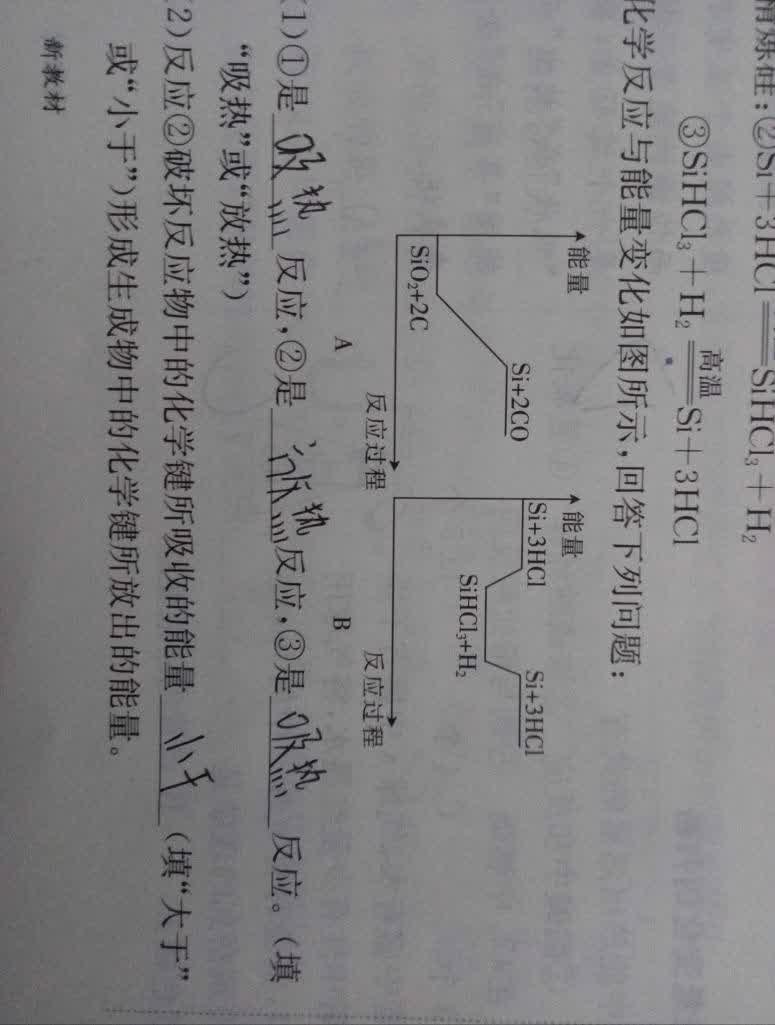 精炼硅:②Si+3HCl══SiHCl₃+H₂
③SiHCl₃+H₂ 高温══ Si+3HCl
化学反应与能量变化如图所示,回答下列问题:
能量
Si+2CO
SiO₂+2C
反应过程
A
能量
Si+3HCl
Si+3HCl
SiHCl₃+H₂
反应过程
B
(1)①是 吸热 反应,②是 放热 反应,③是 吸热 反应。(填
“吸热”或“放热”)
(2)反应②破坏反应物中的化学键所吸收的能量 小于 (填“大于”
或“小于”)形成生成物中的化学键所放出的能量。
新教材